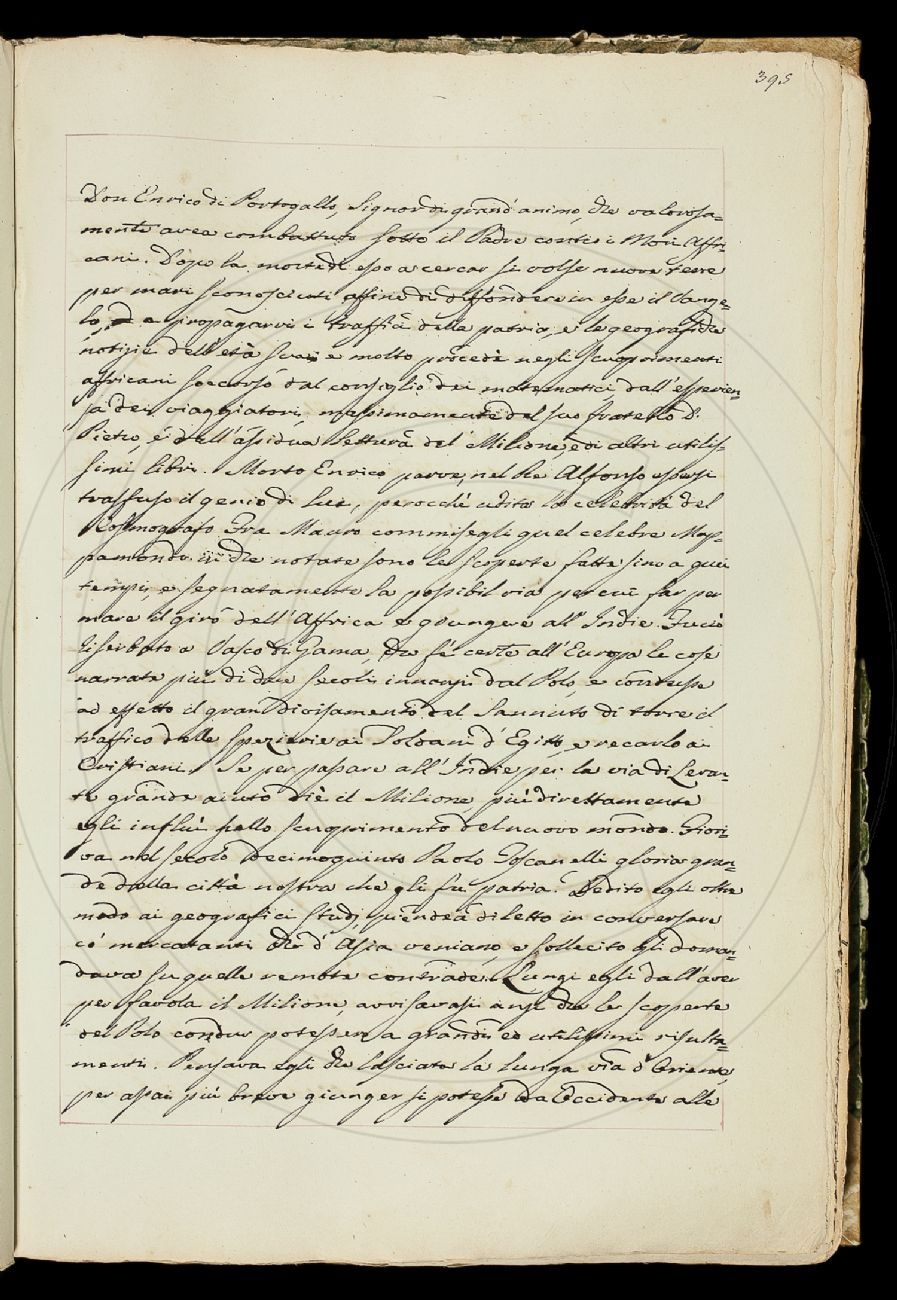 395
Don Enrico di Portogallo, Signor di grand'animo, che valorosa=
mente avea combattuto sotto il Padre contro i Mori Affri=
cani. Dopo la morte di esso a cercar si volse nuove terre
per mari sconosciuti affine di diffondere in esse il Vange=
lo, e propagarvi i traffici della patria, e le geografiche
notizie dell'età sua; e molto procedè negli scuoprimenti
affricani soccorso dal consiglio dei matematici, dall'esperien=
za dei viaggiatori, massimamente del suo fratello D.
Pietro, e dall'assidua lettura del Milione, e di altri utilis=
simi libri. Morto Enrico parve nel Re Alfonso essersi
trasfuso il genio di lui, perocchè udita la celebrità del
Cosmografo Fra Mauro commisegli quel celebre Map=
pamondo in che notate sono le scoperte fatte sino a quei
tempi, e segnatamente la possibil via per cui far per
mare il giro dell'Affrica e giungere all'Indie. Fu ciò
riserbato a Vasco di Gama, che fè certe all'Europa le cose
narrate più di due secoli innanzi dal Polo e condusse
ad effetto il gran divisamento del Sanuto di torre il
traffico delle spezierie ai Soldani d'Egitto, e recarlo ai
Cristiani. Se per passare all'Indie per la via di Levan=
te grande aiuto diè il Milione, più direttamente
egli influì nello scuoprimento del nuovo mondo. Fiori=
va nel secolo decimoquinto Paolo Toscanelli gloria gran=
de della città nostra che gli fu patria. Dedito egli oltre
modo ai geografici studj, prendea diletto in conversare
co' mercatanti che d'Asia veniano, e sollecito gli doman=
dava su quelle remote contrade. Lungi egli dall'aver
per favola il Milione, avvisavasi anzi che le scoperte
del Polo condur potessero a grandi ed utilissimi risulta=
menti. Pensava egli che lasciata la lunga via d'Oriente,
per assai più breve giunger si potesse da Occidente alle